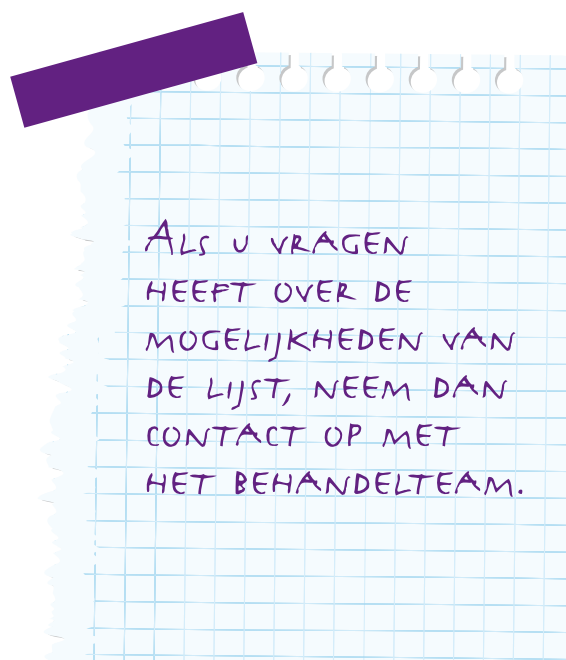 Als u vragen
heeft over de
mogelijkheden van
de lijst, neem dan
contact op met
het behandelteam.